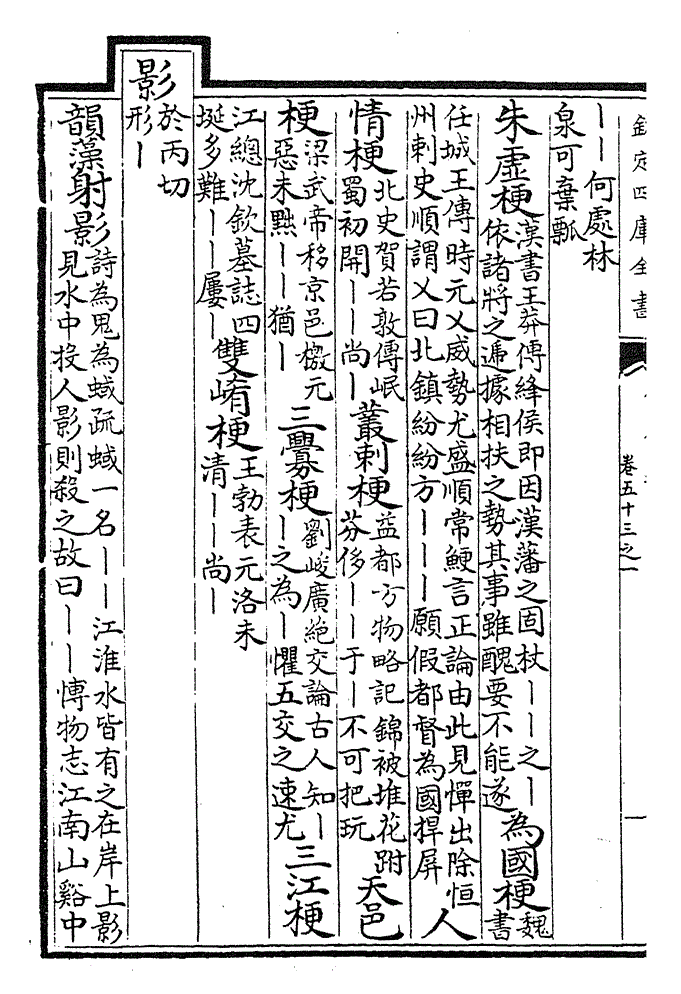 欽定四庫全書
卷五十三之一
丨丨何處林
泉可棄瓢
朱虛梗
漢書王莽傳絳侯即因漢藩之固杖丨丨之丨
依諸將之遞據相扶之勢其事雖醜要不能遂
為國梗
魏
書
任城王傳時元乂威勢尤盛順常鯁言正論由此見憚出除恒
州刺史順謂乂曰北鎮紛紛方丨丨丨願假都督為國捍屏
人
情梗
北史賀若敦傳岷
蜀初開丨丨尚丨
叢刺梗
益都方物略記錦被堆花跗
芬侈丨丨于丨不可把玩
天邑
梗
梁武帝移京邑檄元
惡未黜丨丨猶丨
三釁梗
劉峻廣絕交論古人知丨
丨之為丨懼五交之速尤
三江梗
江總沈欽墓誌四
埏多難丨丨屢丨
雙崤梗
王勃表元洛未
清丨丨尚丨
影
於丙切
形丨
韻藻射影
詩為鬼為蜮疏蜮一名丨丨江淮水皆有之在岸上影
見水中投人影則殺之故曰丨丨博物志江南山谿中